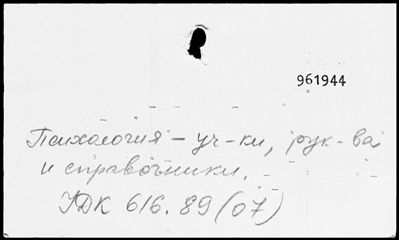 961944
Психология – уч-ки, рук-ва
и справочники.
УДК 616.89(07)